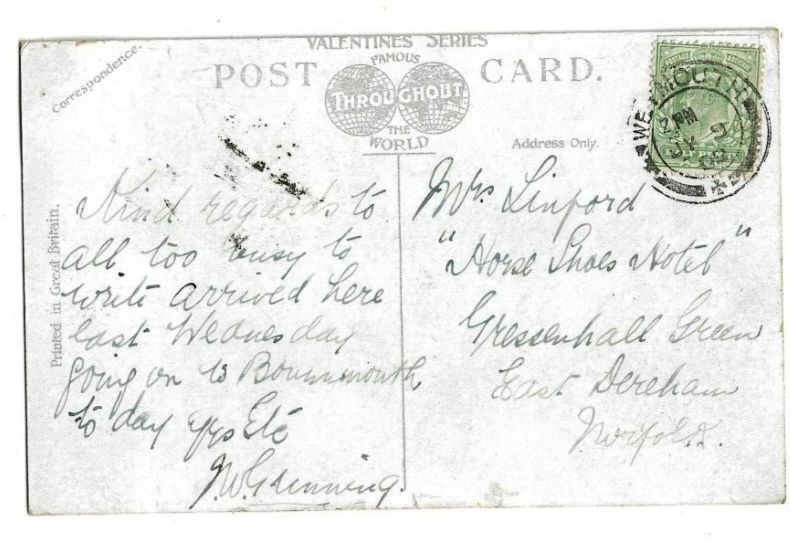 VALENTINES SERIES
FAMOUS
POST CARD.
THROUGHOUT
THE
WORLD
Correspondence.
Address Only.
Printed in Great Britain.
WEYMOUTH
2 PM
JY 9
Kind regards to
all too busy to
write arrived here
last Wednesday
going on to Bournemouth
to day yrs Etc
Mrs Linford
"Horse Shoes Hotel"
Gressenhall Green
East Dereham
Norfolk.